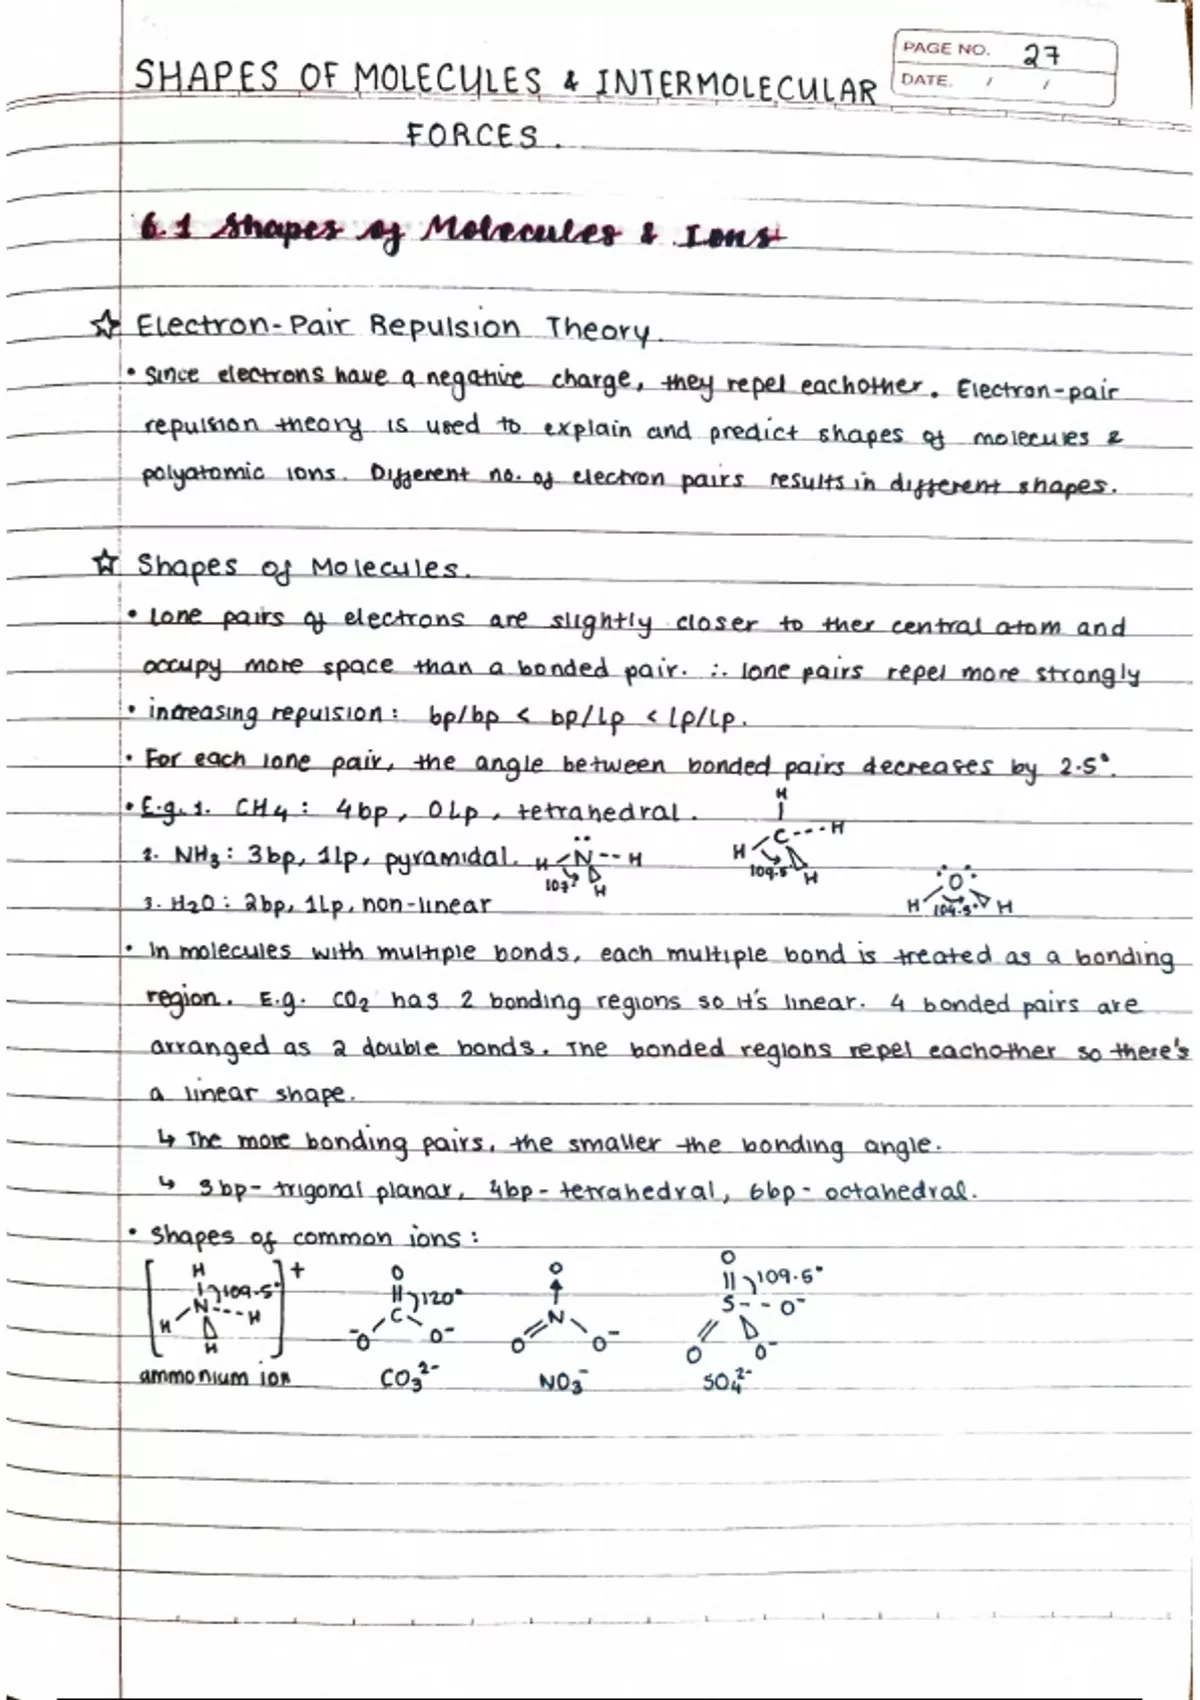 PAGE NO. 27
DATE. / /
SHAPES OF MOLECULES & INTERMOLECULAR
FORCES.
6.1 Shapes of Molecules & Ions
☆ Electron-Pair Repulsion Theory.
• Since electrons have a negative charge, they repel eachother. Electron-pair
repulsion theory is used to explain and predict shapes of molecules &
polyatomic ions. Different no. of electron pairs results in different shapes.
☆ Shapes of Molecules.
• Lone pairs of electrons are slightly closer to ther central atom and
occupy more space than a bonded pair. ∴ lone pairs repel more strongly
• increasing repulsion: bp/bp < bp/Lp < Lp/Lp.
• For each lone pair, the angle between bonded pairs decreases by 2.5°.
• E.g. 1. CH4 : 4bp, 0Lp, tetrahedral.
H
C H
H 109.5 H
2. NH3 : 3bp, 1lp, pyramidal.
H N H
107° H
3. H2O : 2bp, 1Lp, non-linear
O
H 104.5° H
• In molecules with multiple bonds, each multiple bond is treated as a bonding
region. E.g. CO2 has 2 bonding regions so it's linear. 4 bonded pairs are
arranged as 2 double bonds. The bonded regions repel eachother so there's
a linear shape.
↳ The more bonding pairs, the smaller the bonding angle.
↳ 3bp- trigonal planar, 4bp - tetrahedral, 6bp - octahedral.
• Shapes of common ions :
H +
109.5°
N H
H H
ammonium ion
O
120°
C
-O O-
CO3²-
O
N
O O-
NO3-
O
109.5°
S O-
O O-
SO4²-